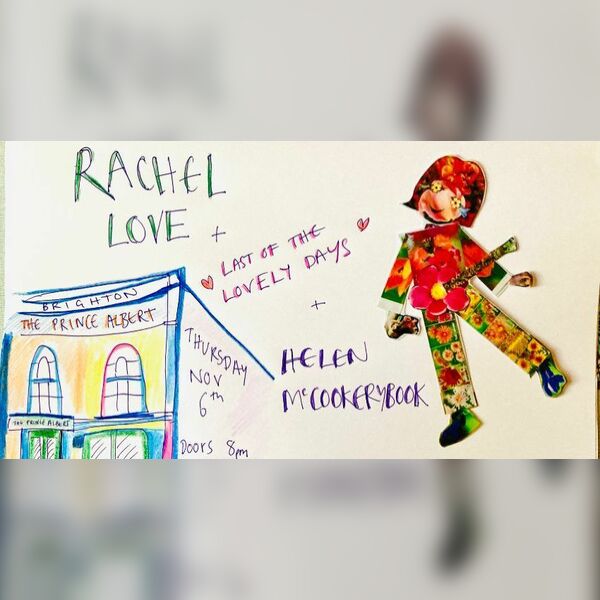 RACHEL
LOVE +
LAST OF THE
LOVELY DAYS
+
HELEN
McCOOKERYBOOK
BRIGHTON
THE PRINCE ALBERT
THE PRINCE ALBERT
THURSDAY
NOV
6th
DOORS 8pm